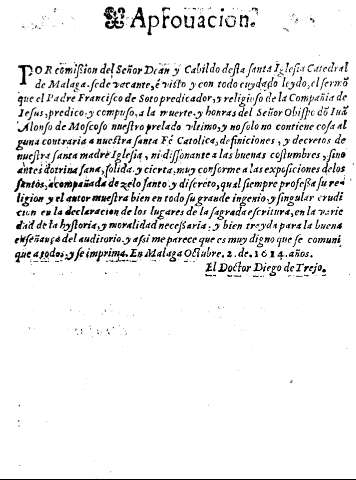 Aprouacion.
POR comission del Señor Dean y Cabildo desta santa Iglesia Catedral
de Malaga. sede vacante, è visto y con todo cuydado leydo, el sermõ
que el Padre Francisco de Soto predicador, y religioso de la Compañia de
Iesus, predicò y compuso, a la muerte, y honras del Señor Obispo dõ Iuã
Alonso de Moscoso nuestro prelado vltimo, y no solo no contiene cosa al
guna contraria a nuestra santa Fè Catolica, definiciones, y decretos de
nuestra santa madre Iglesia, ni dissonante a las buenas costumbres, sino
antes dotrina sana, solida, y cierta, muy conforme a las exposiciones de los
santos, acompañada de zelo santo, y discreto, qual siempre professa su re
ligion y el autor muestra bien en todo su grande ingenio, y singular erudi
cion en la declaracion de los lugares de la sagrada escritura, en la varie
dad de la hystoria, y moralidad necessaria, y bien trayda para la buena
enseñança del auditorio. y assi me parece que es muy digno que se comuni
que a todos, y se imprima. En Malaga Octubre. 2. de 1614. años.
El Doctor Diego de Trejo.